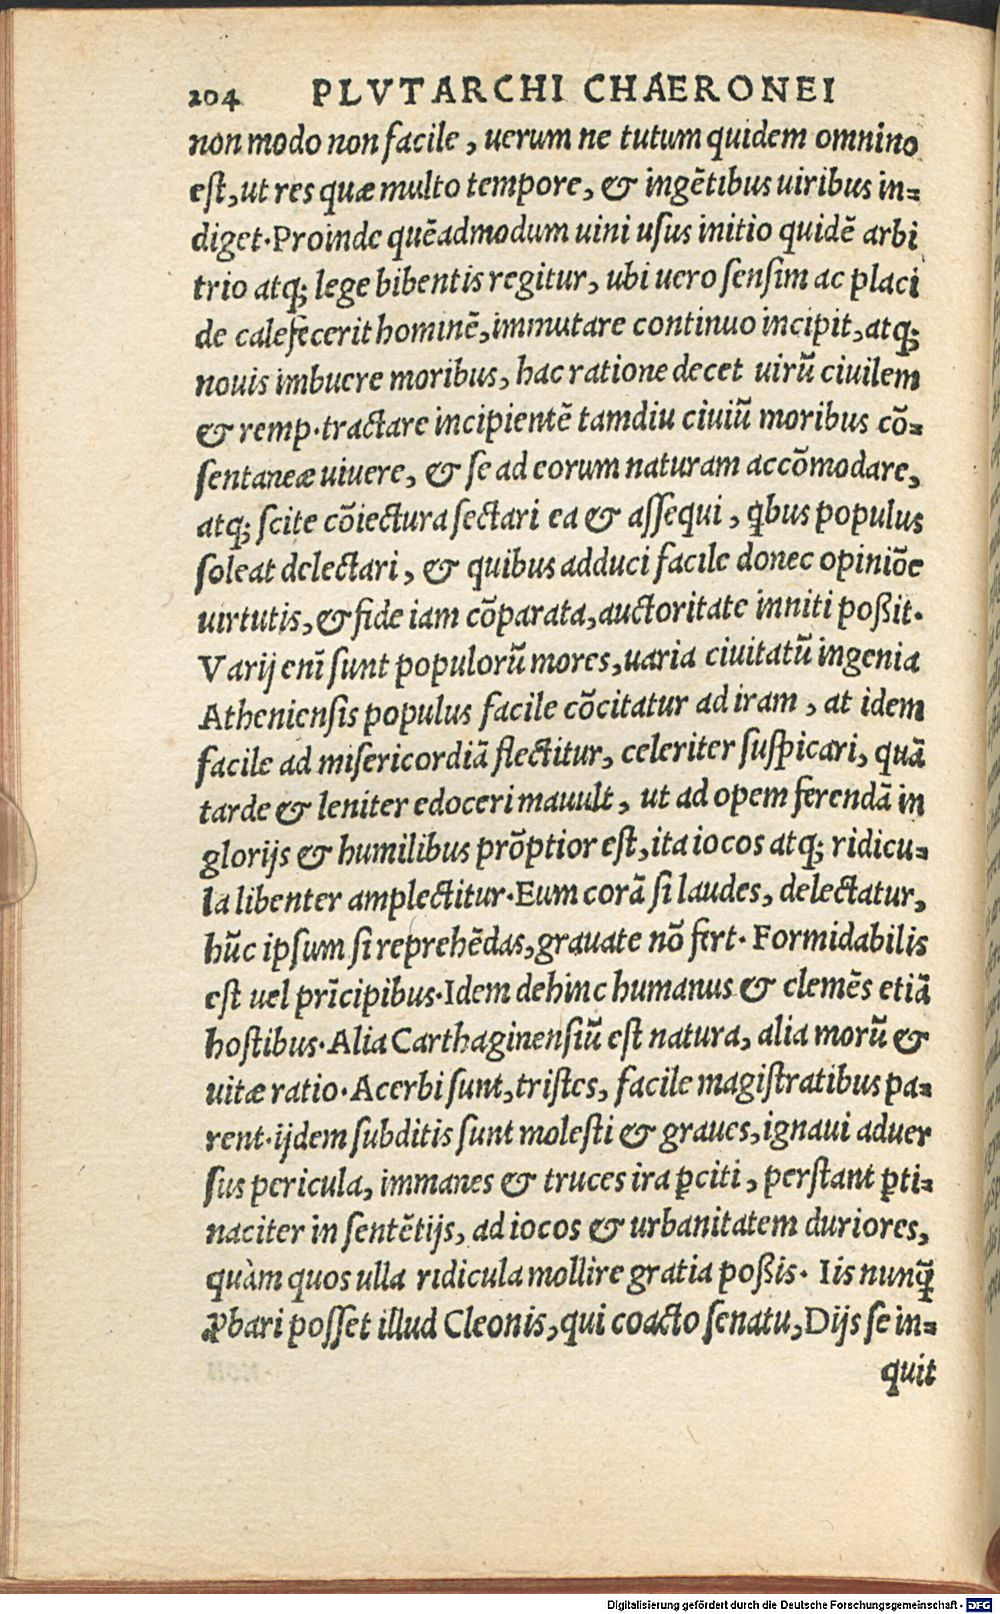 204 PLVTARCHI CHAERONEI
non modo non facile, uerum ne tutum quidem omnino
est, ut res quæ multo tempore, & ingẽtibus uiribus in=
diget. Proinde quẽadmodum uini usus initio quidẽ arbi
trio atq; lege bibentis regitur, ubi uero sensim ac placi
de calefecerit hominẽ, immutare continuo incipit, atq;
nouis imbuere moribus, hac ratione decet uirũ ciuilem
& remp. tractare incipientẽ tamdiu ciuiũ moribus cõ=
sentaneæ uiuere, & se ad eorum naturam accõmodare,
atq; scite cõiectura sectari ea & assequi, qͥbus populus
soleat delectari, & quibus adduci facile donec opiniõe
uirtutis, & fide iam cõparata, auctoritate inniti poßit.
Varij enĩ sunt populorũ mores, uaria ciuitatũ ingenia
Atheniensis populus facile cõcitatur ad iram, at idem
facile ad misericordiã flectitur, celeriter suspicari, quã
tarde & leniter edoceri mauult, ut ad opem ferendã in
glorijs & humilibus prõptior est, ita iocos atq; ridicu=
la libenter amplectitur. Eum corã si laudes, delectatur,
hũc ipsum si reprehẽdas, grauate nõ fert. Formidabilis
est uel prĩcipibus. Idem dehinc humanus & clemẽs etiã
hostibus. Alia Carthaginensiũ est natura, alia morũ &
uitæ ratio. Acerbi sunt, tristes, facile magistratibus pa=
rent. ijdem subditis sunt molesti & graues, ignaui aduer
sus pericula, immanes & truces ira ꝑciti, perstant ꝑti=
naciter in sentẽtijs, ad iocos & urbanitatem duriores,
quàm quos ulla ridicula mollire gratia poßis. Iis nunq̃
ꝓbari posset illud Cleonis, qui coacto senatu, Dijs se in=
quit
Digitalisierung gefördert durch die Deutsche Forschungsgemeinschaft - DFG